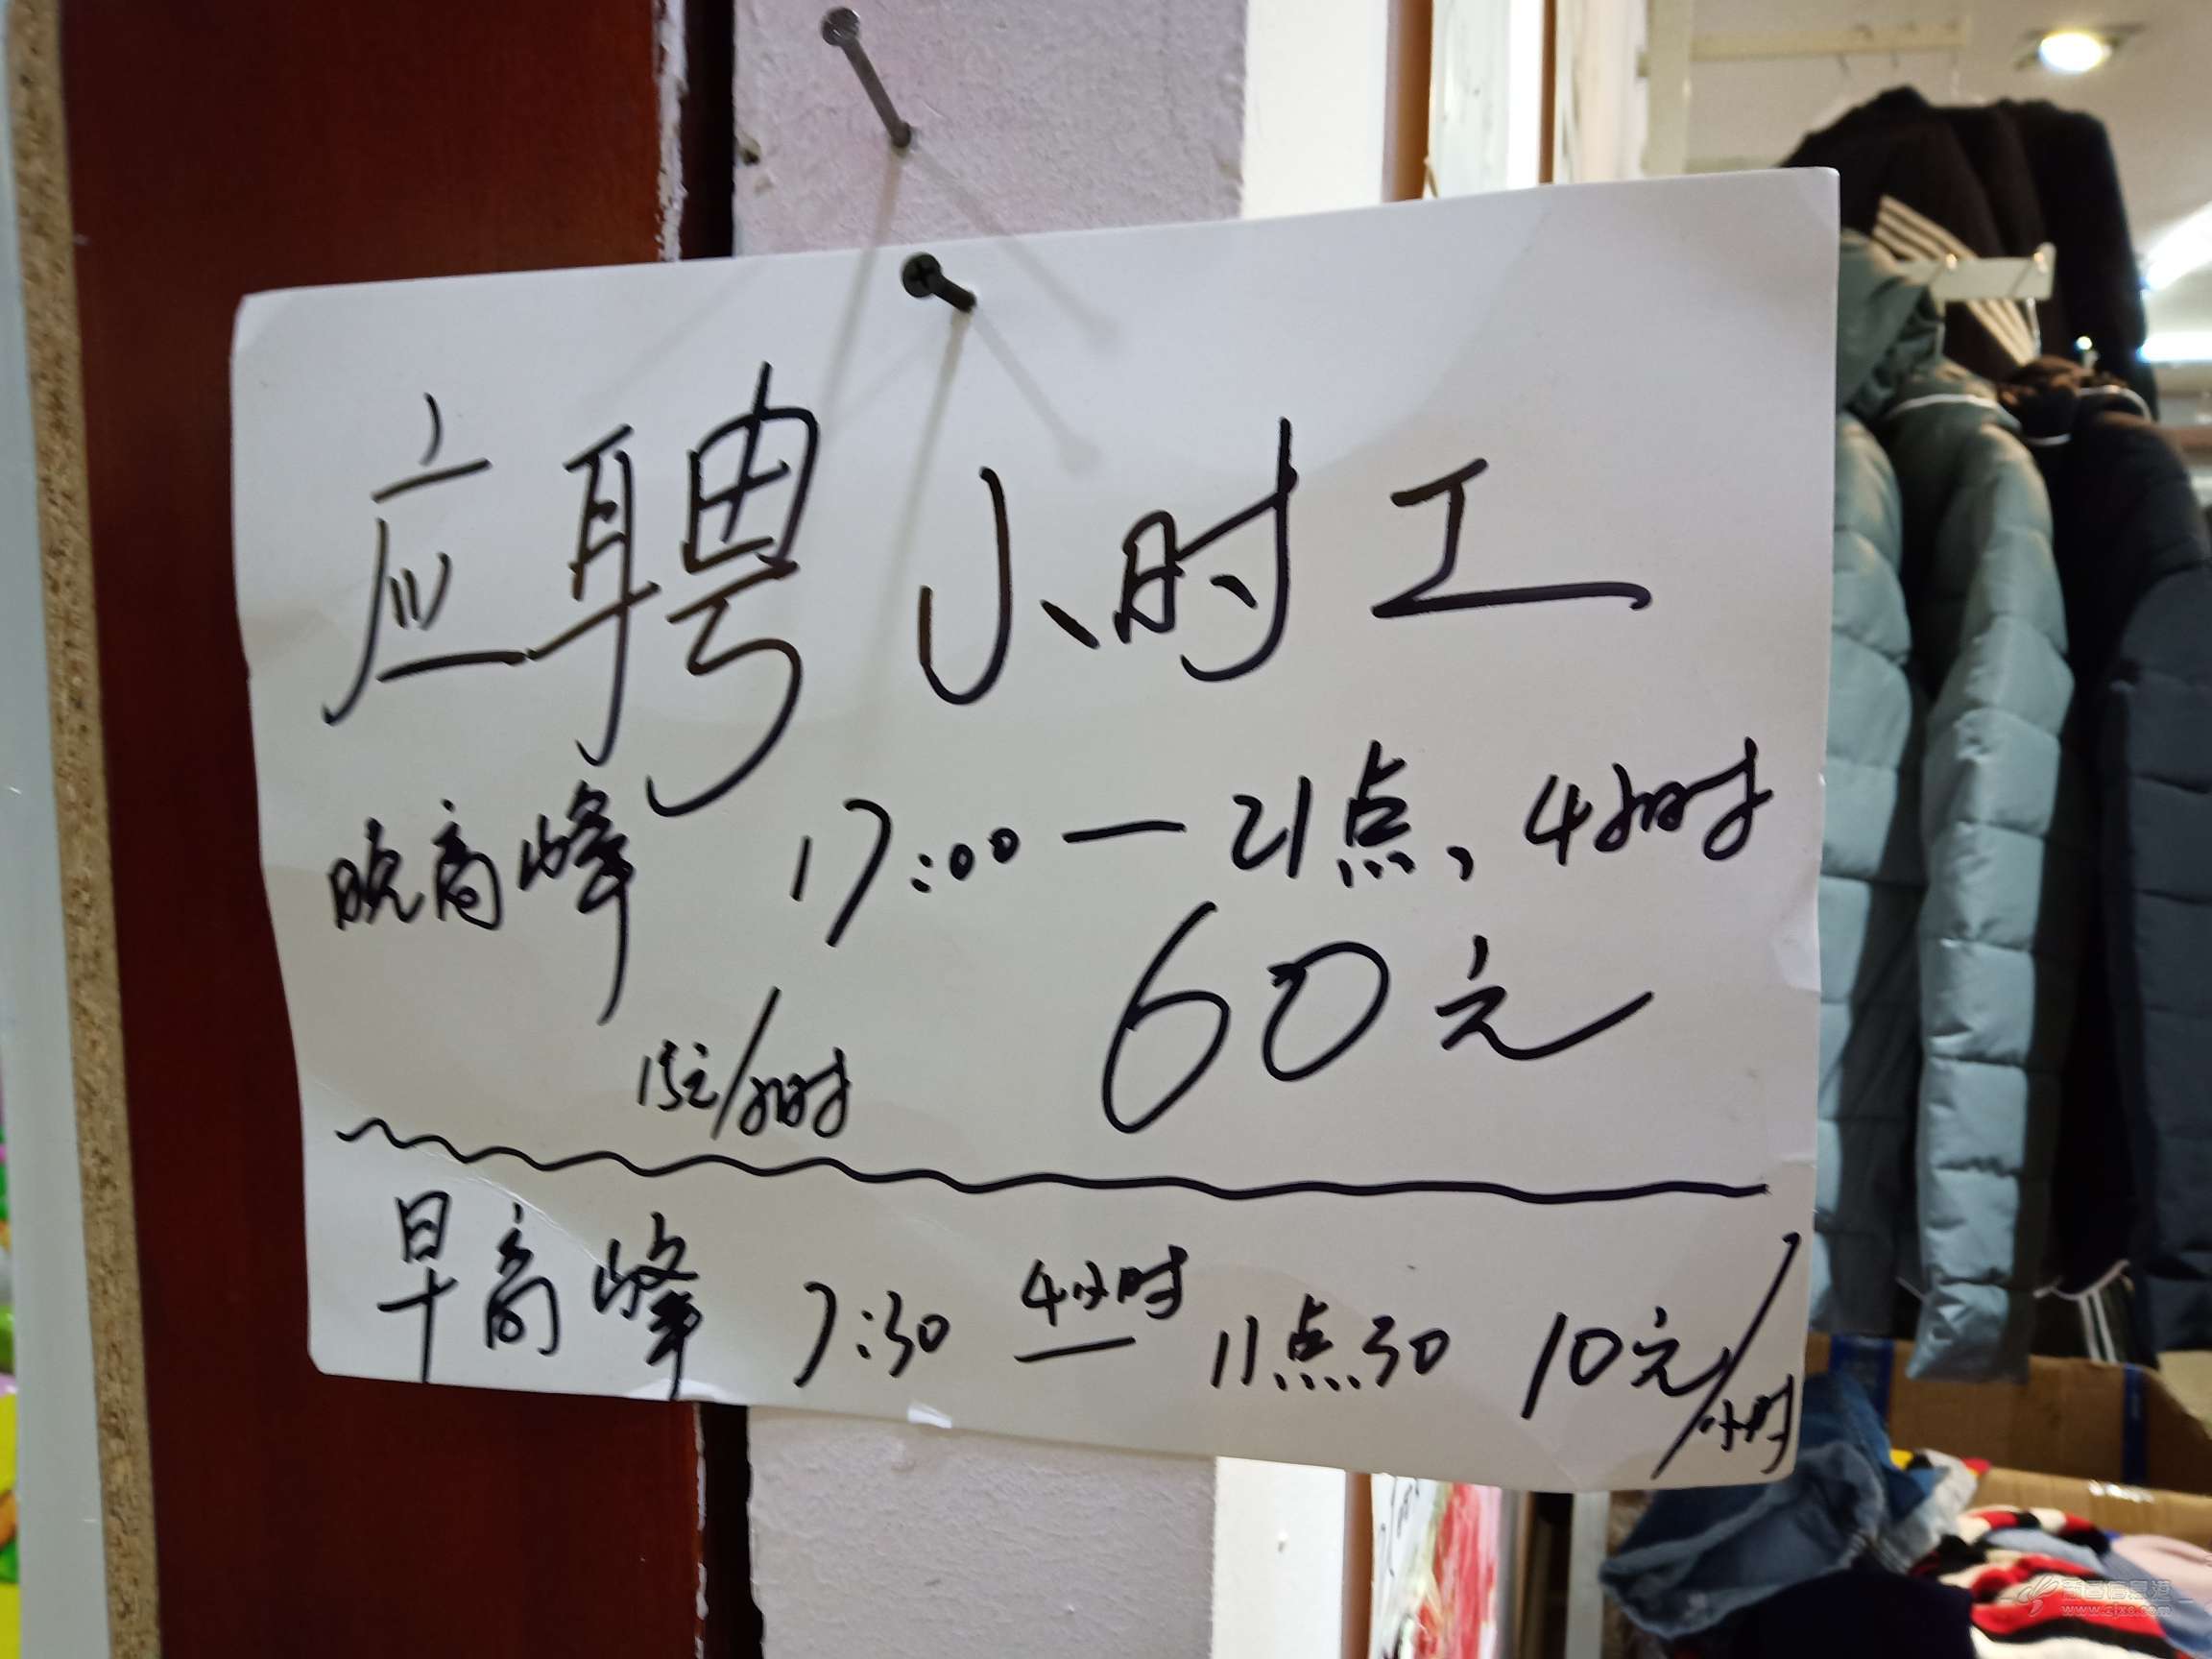 应聘小时工
晚高峰 17:00—21点、4小时
60元
15元/小时
早高峰 7:30 — 11点30 10元/小时
4小时
www.zjxs.com